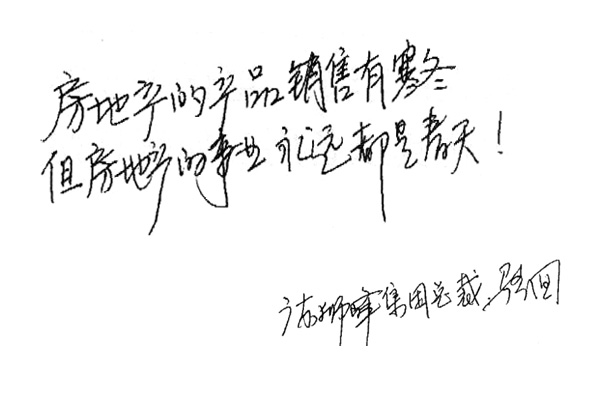 房地产的产品销售有寒冬
但房地产的事业永远都是春天！
狮峰集团总裁